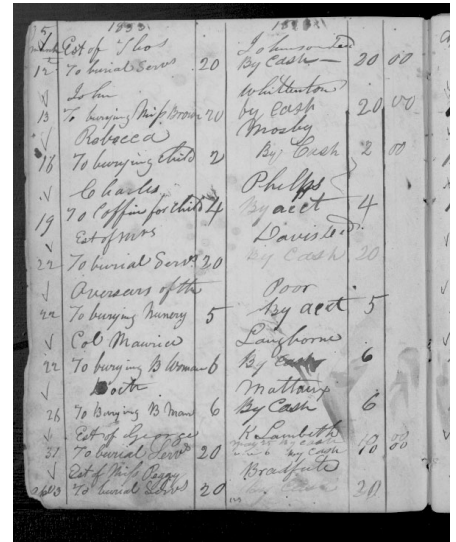 1833
Est of Thos Johnson Decd
12 To burial Servs 20 By Cash 20 00
John Whittenton
13 To burying Miss Brown 20 by Cash 20 00
Rebecca Mosby
16 To burying Child 2 By Cash 2 00
Charles Phelps
19 To Coffin for Child 4 By acct 4
Est of Mrs Davis Decd
22 To burial Servs 20 By Cash 20
Overseers of the Poor
22 To burying 5 By acct 5
Col Maurice Langhorne
22 To burying B Woman 6 By 6
Doctr Mattaux
26 To Burying B Man 6 By Cash 6
Est of George K Lambeth
31 To burial Servs 20 by Cash 10 00
Est of Miss Peggy Bradfute
To burial Servs 20 20